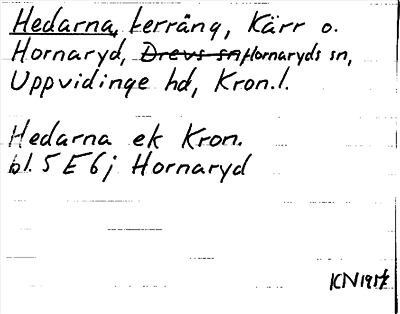 Hedarna, terräng, Kärr o.
Hornaryd, Drevs sn, Hornaryds sn,
Uppvidinge hd, Kron.l.
Hedarna ek Kron.
bl. 5 E 6 j Hornaryd